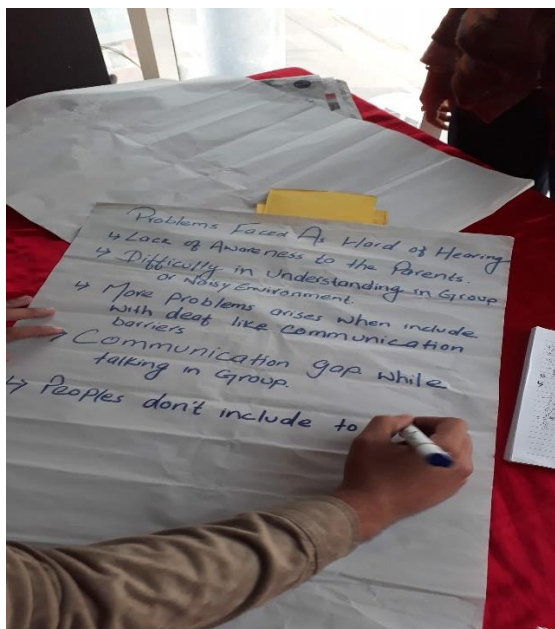 Problems Faced As Hard of Hearing
↳ Lack of Awareness to the Parents.
↳ Difficulty in Understanding in Group
or Noisy Environment.
↳ More problems arises when include
with deaf like communication
barriers
↳ Communication gap while
talking in Group.
↳ Peoples don't include to